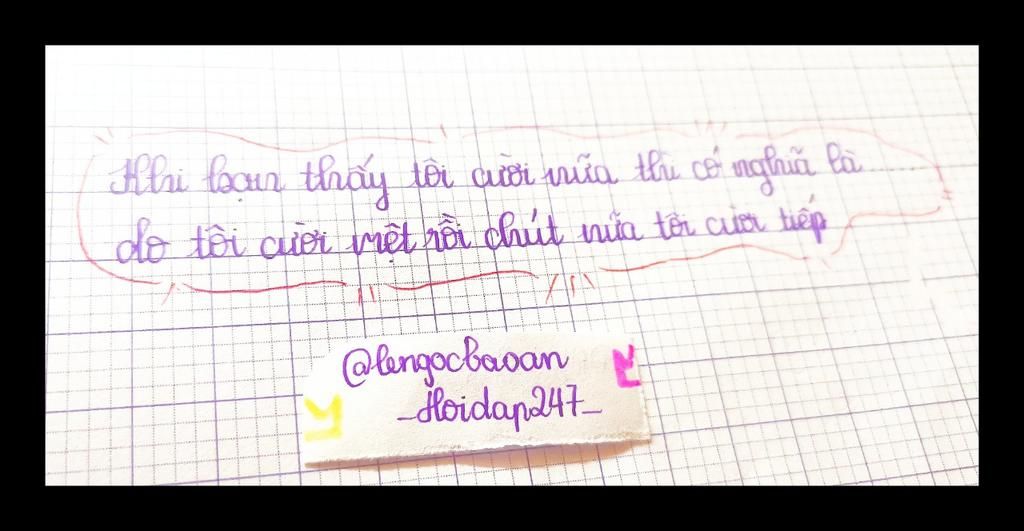 Khi bạn thấy tôi cười nữa thì có nghĩa là
do tôi cười mệt rồi chút nữa tôi cười tiếp
@lengocbaoan
_Hoidap247_